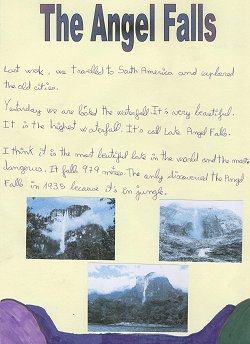 The Angel Falls
Last week, we travelled to South America and explored
the old cities.
Yesterday we are looked the waterfall. It's very beautiful.
It is the highest waterfall. It's call Late Angel Falls.
I think it is the most beutiful late in the world and the most
dangerous. It falls 979 metres. The only discovered the Angel
Falls in 1935 because it's in jungle.